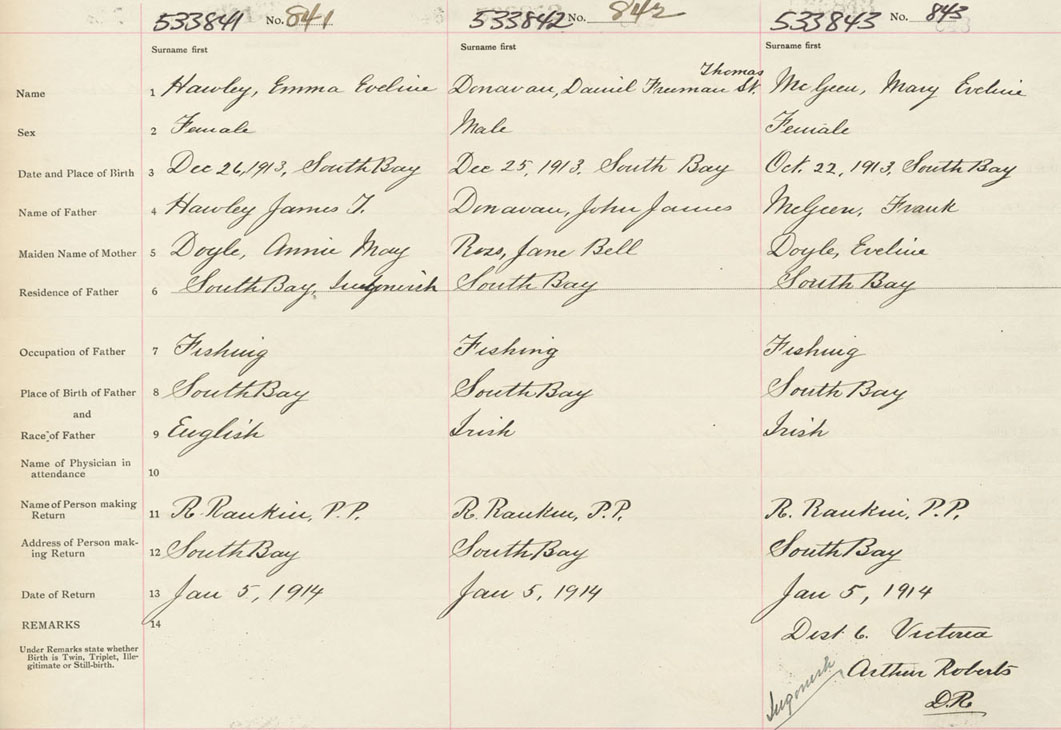 533841 No. 841 533842 No. 842 533843 No. 843
Surname first Surname first Surname first
Thomas
Name 1 Hawley, Emma Eveline Donavan, Daniel Freeman St. McGeen, Mary Eveline
Sex 2 Female Male Female
Date and Place of Birth 3 Dec 26, 1913, South Bay Dec 25, 1913, South Bay Oct. 22, 1913, South Bay
Name of Father 4 Hawley James T. Donavan, John James McGeen, Frank
Maiden Name of Mother 5 Doyle, Annie May Ross, Jane Bell Doyle, Eveline
Residence of Father 6 South Bay, South Bay South Bay
Occupation of Father 7 Fishing Fishing Fishing
Place of Birth of Father 8 South Bay South Bay South Bay
and
Race of Father 9 English Irish Irish
Name of Physician in
attendance 10
Name of Person making
Return 11 R. Rankin, P.P. R. Rankin, P.P. R. Rankin, P.P.
Address of Person mak-
ing Return 12 South Bay South Bay South Bay
Date of Return 13 Jan 5, 1914 Jan 5, 1914 Jan 5, 1914
REMARKS 14 Dist 6. Victoria
Under Remarks state whether
Birth is Twin, Triplet, Ille-
gitimate or Still-birth.
Ingonish Arthur Roberts
D.R.